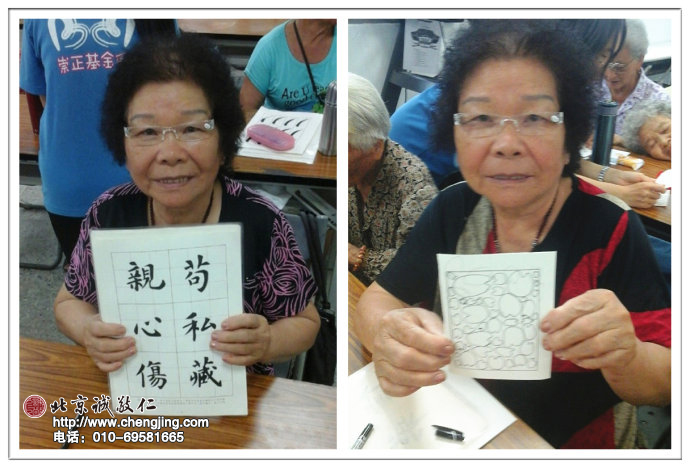 崇正基金
苟私藏
親心傷
北京诚敬仁
http://www.chengjing.com
电话：010-69581665